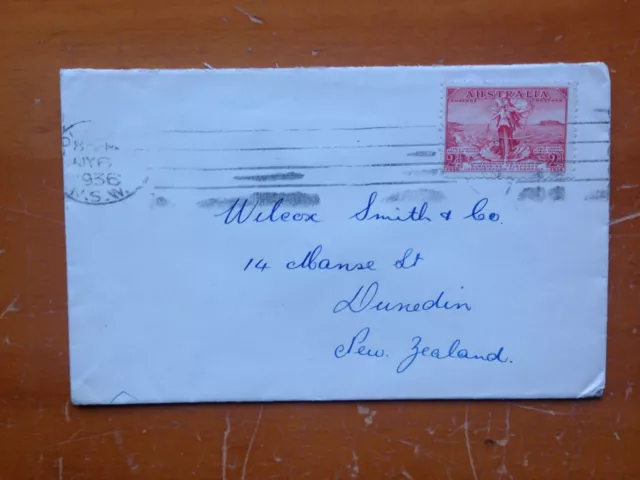 AUSTRALIA
2D 2D
1936 1936
8
MY6
1936
N.S.W.
Wilcox Smith & Co.
14 Manse St
Dunedin
New Zealand.